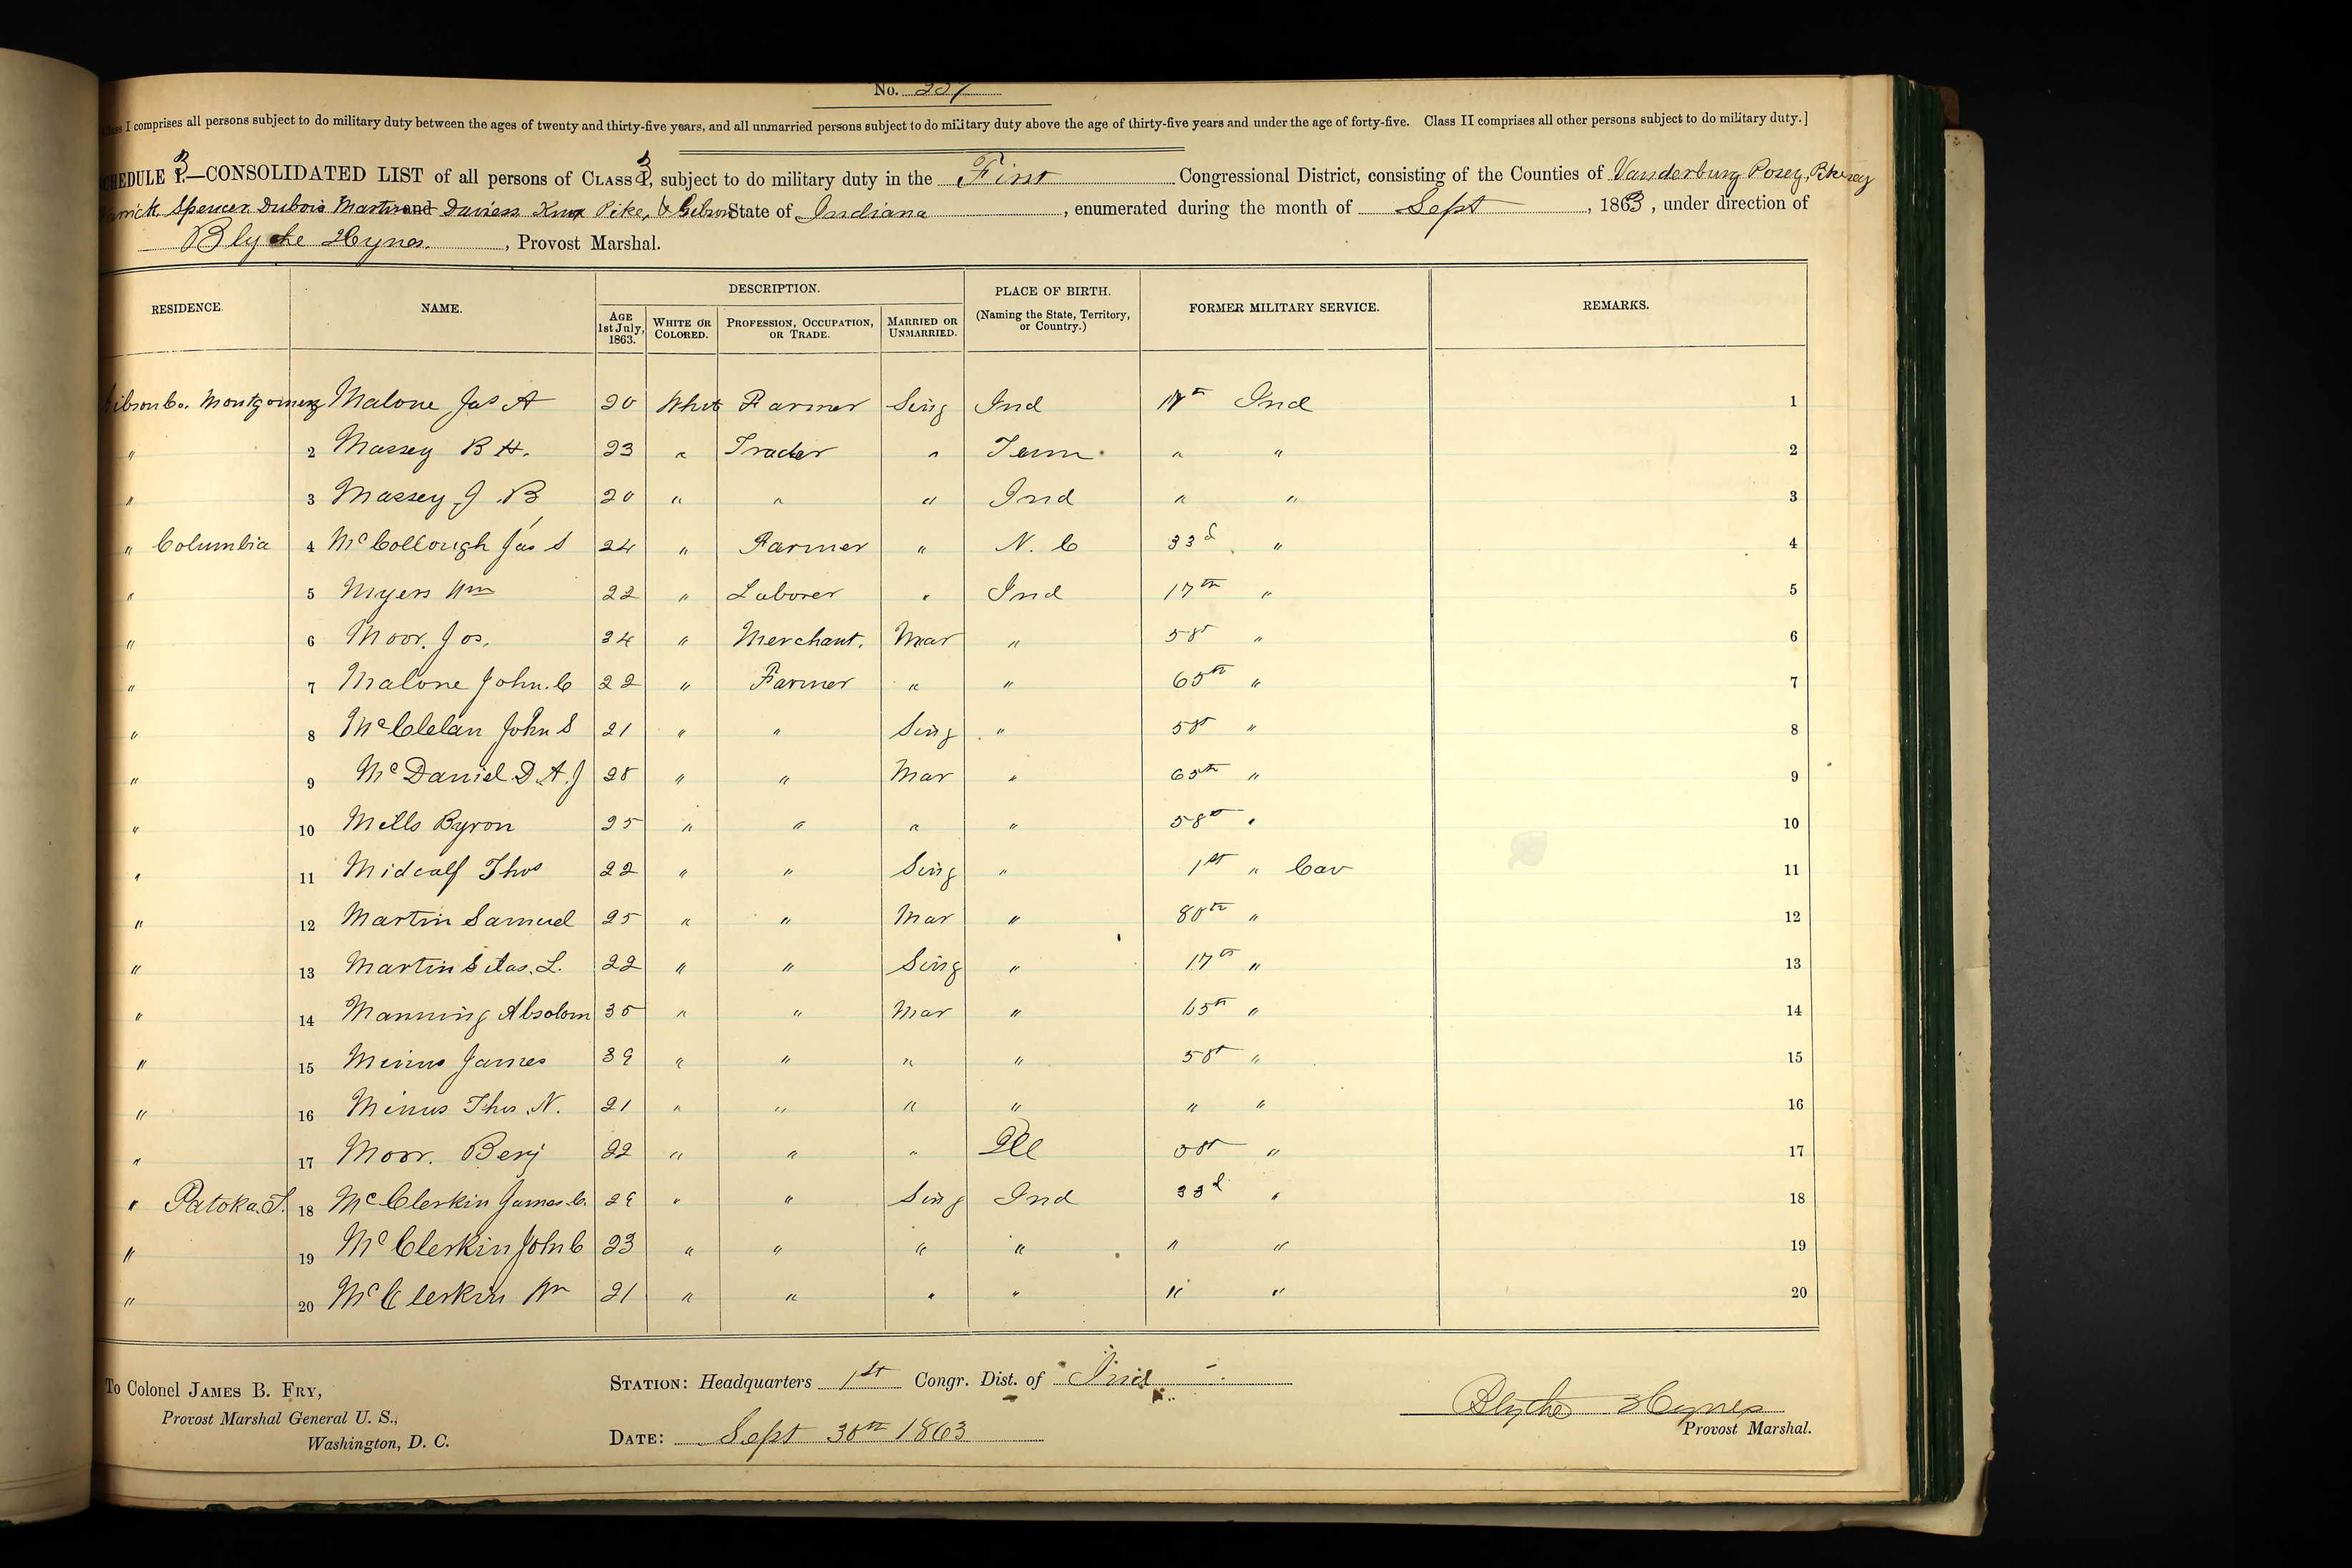 No. 257
Class I comprises all persons subject to do military duty between the ages of twenty and thirty-five years, and all unmarried persons subject to do military duty above the age of thirty-five years and under the age of forty-five. Class II comprises all other persons subject to do military duty.]
SCHEDULE 3.—CONSOLIDATED LIST of all persons of CLASS 3, subject to do military duty in the First Congressional District, consisting of the Counties of Vanderburg Posey,
Warrick, Spencer, Dubois Martin and Daviess Knox Pike, & Gibson State of Indiana, enumerated during the month of Sept, 1863, under direction of
Blythe Hynes., Provost Marshal.
RESIDENCE. NAME. DESCRIPTION. PLACE OF BIRTH. (Naming the State, Territory, or Country.) FORMER MILITARY SERVICE. REMARKS.
AGE 1st July, 1863. WHITE OR COLORED. PROFESSION, OCCUPATION, OR TRADE. MARRIED OR UNMARRIED.
Gibson Co. Montgomery Malone Jas A 20 Whit Farmer Sing Ind 17th Ind 1
" 2 Massey B H. 23 " Trader " Tenn " " 2
" 3 Massey J. B 20 " " " Ind " " 3
" Columbia 4 McCollough Jas S 24 " Farmer " N. C 33d " 4
" 5 Myers Wm 22 " Laborer " Ind 17th " 5
" 6 Moor. Jos. 24 " Merchant. Mar " 58th " 6
" 7 Malone John. C 22 " Farmer " " 65th " 7
" 8 McClelan John S 21 " " Sing " 58th " 8
" 9 McDaniel D. A. J 28 " " Mar " 65th " 9
" 10 Mills Byron 25 " " " " 58th " 10
" 11 Midcalf Thos 22 " " Sing " 1st " Cav 11
" 12 Martin Samuel 25 " " Mar " 80th " 12
" 13 Martin Silas. L. 22 " " Sing " 17th " 13
" 14 Manning Absolom 35 " " Mar " 65th " 14
" 15 Minus James 39 " " " " 58th " 15
" 16 Minus Thos. N. 21 " " " " " " 16
" 17 Moor. Benj 22 " " " Ill 58th " 17
" Patoka. T. 18 McClerkin James. C. 29 " " Sing Ind 33d " 18
" 19 McClerkin John C 23 " " " " " " 19
" 20 McClerkin Wm 21 " " " " " " 20
To Colonel JAMES B. FRY,
Provost Marshal General U. S.,
Washington, D. C.
STATION: Headquarters 1st Congr. Dist. of Ind
DATE: Sept 30th 1863
Blythe Hynes
Provost Marshal.